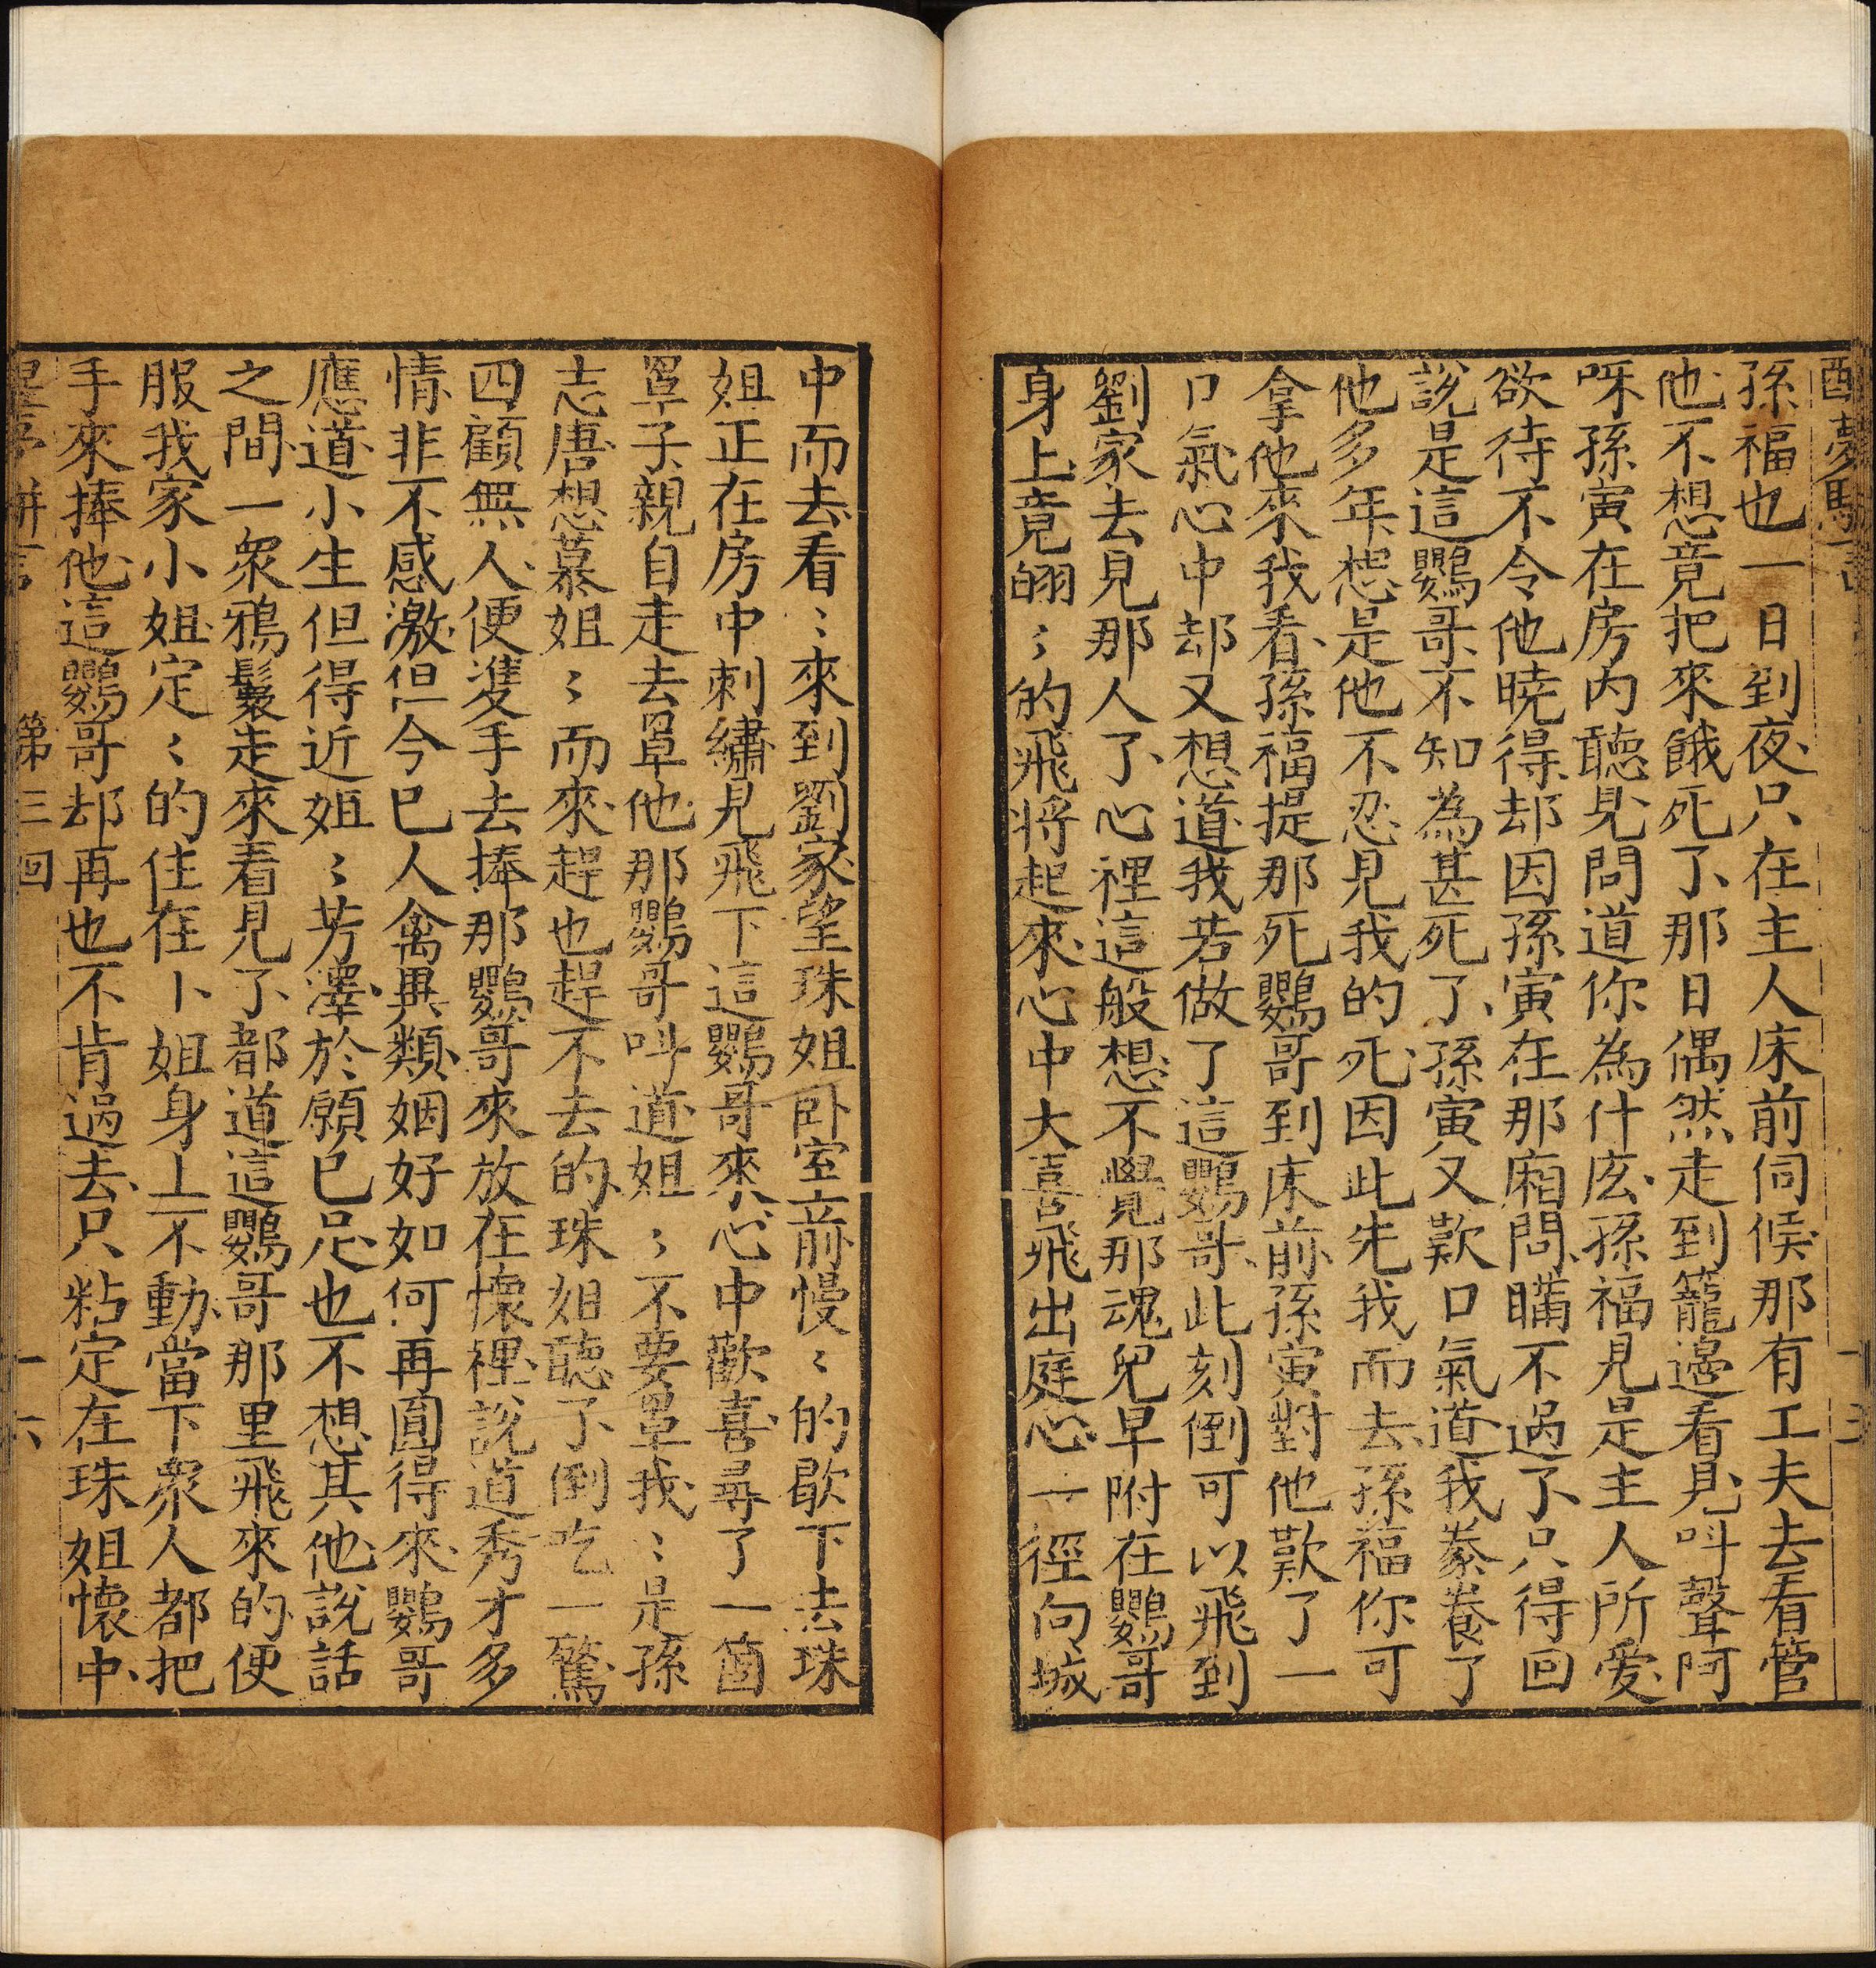 醒夢駢言
孫福也一日到夜只在主人床前伺候那有工夫去看管
他不想竟把來餓死了那日偶然走到籠邊看見呌聲阿
呀孫寅在房內聽見問道你為什庅孫福見是主人所愛
欲待不令他曉得却因孫寅在那廂問瞞不過了只得回
說是這鸚哥不知為甚死了孫寅又歎口氣道我豢養了
他多年想是他不忍見我的死因此先我而去孫福你可
拿他來我看孫福提那死鸚哥到床前孫寅對他歎了一
口氣心中却又想道我若做了這鸚哥此刻倒可以飛到
劉家去見那人了心裡這般想不覺那魂兒早附在鸚哥
身上竟翊〻的飛將起來心中大喜飛出庭心一徑向城
中而去看〻來到劉家望珠姐卧室前慢〻的歇下去珠
姐正在房中刺繡見飛下這鸚哥來心中歡喜尋了一箇
罩子親自走去罩他那鸚哥呌道姐〻不要罩我〻是孫
志唐想慕姐〻而來趕也趕不去的珠姐聽了倒吃一驚
四顧無人便𨾏手去捧那鸚哥來放在懷裡說道秀才多
情非不感激但今已人禽異類姻好如何再圓得來鸚哥
應道小生但得近姐〻芳澤於願已足也不想其他說話
之間一衆鴉鬟走來看見了都道這鸚哥那里飛來的便
服我家小姐定〻的住在小姐身上不動當下衆人都把
手來捧他這鸚哥却再也不肯過去只粘定在珠姐懷中
第三回
十六